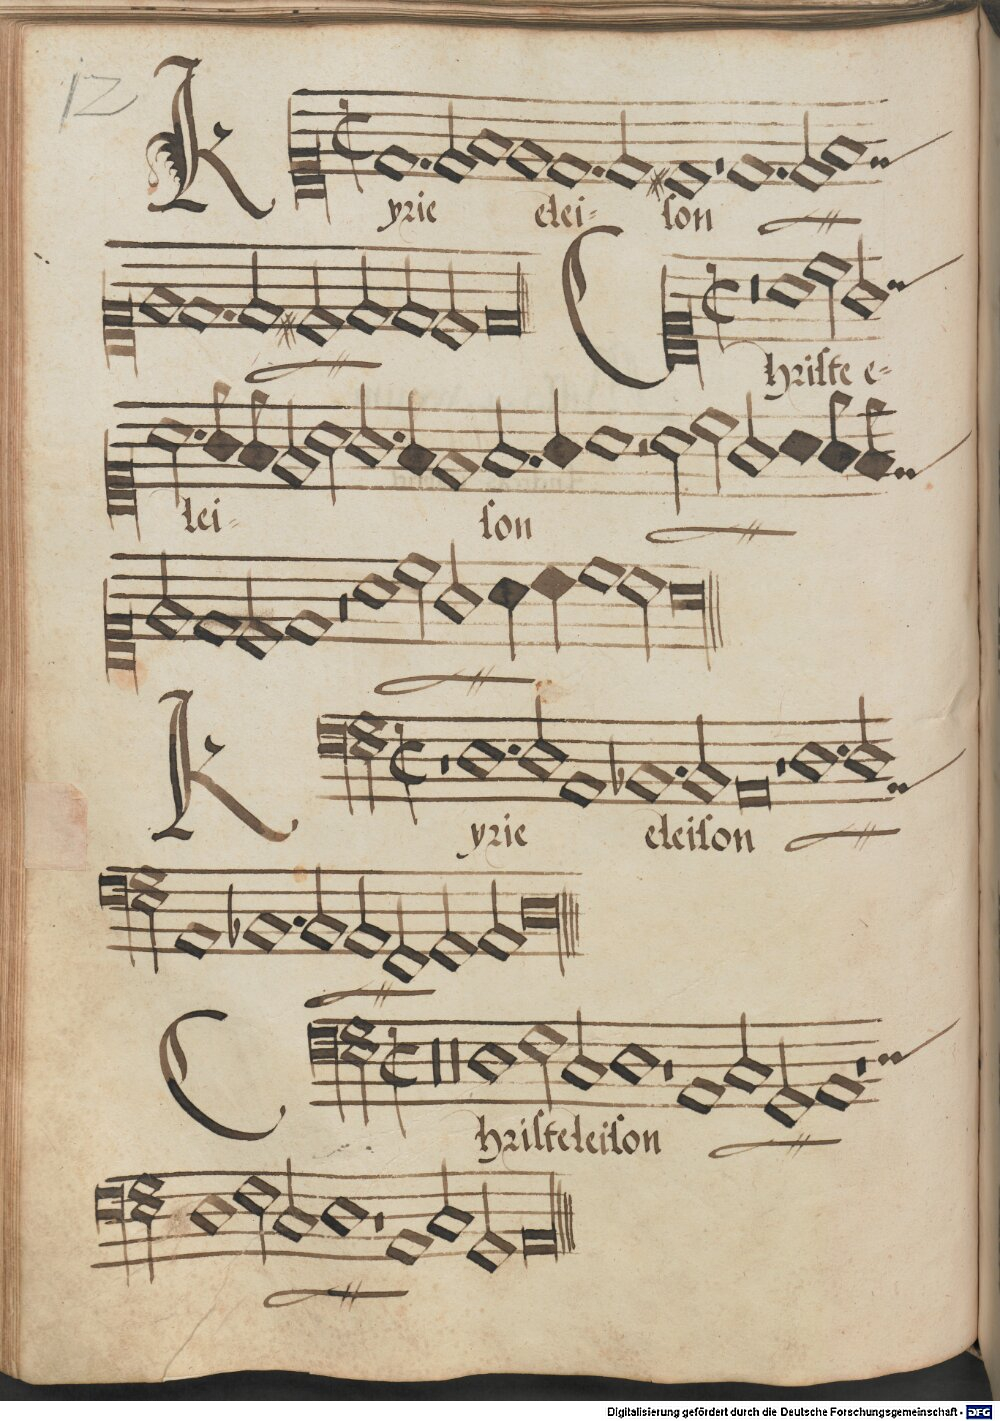 12
Kyrie elei- son
Christe e-
lei- son
Kyrie eleison
Christeleison
Digitalisierung gefördert durch die Deutsche Forschungsgemeinschaft - DFG